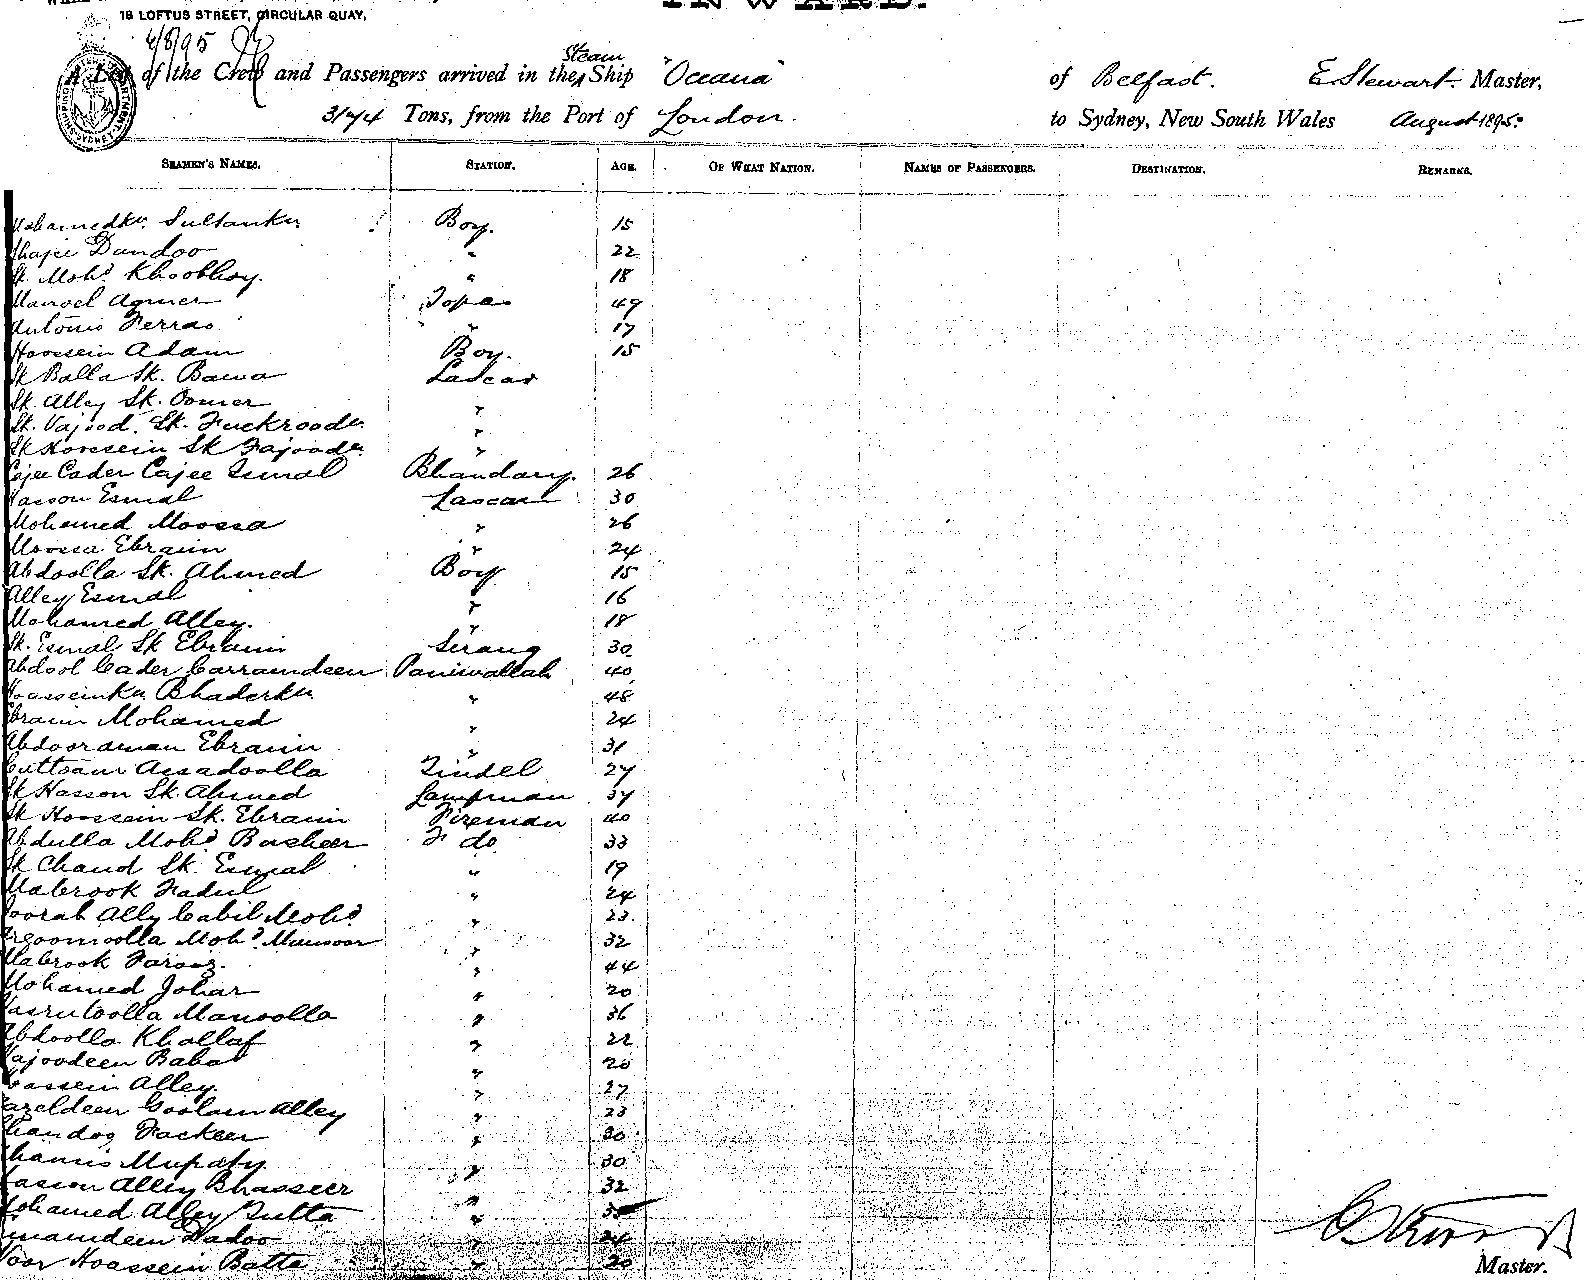 INWARD.
18 LOFTUS STREET, CIRCULAR QUAY,
4/8/95
A List of the Crew and Passengers arrived in the Steam Ship "Oceana" of Belfast. E. Stewart. Master,
Tons, from the Port of London. to Sydney, New South Wales August 1895.
SEAMEN'S NAMES. STATION. AGE. OF WHAT NATION. NAMES OF PASSENGERS. DESTINATION. REMARKS.
Mohamedkn. Sultankn Boy. 15
Dandoo " 22
Sk. Mohd. Khoobhoy. " 18
Manoel Agnier Topas 49
Antonio Ferrao " 17
Hoosein Adam Boy. 15
Sk Balla Sk. Bawa Lascar
Sk. Alley Sk. Oomer "
Sk. Vajood. Sk. Fuckroodn. "
Sk Hoosein Sk Fajoodn. "
Cajee Cader Cajee Esmal Bhandary. 26
Hasson Esmal Lascar 30
Mohamed Moossa " 26
Moossa Ebraim " 24
Abdoolla Sk. Ahmed Boy 15
Alley Esmal " 16
Mohamed Alley. " 18
Sk. Esmal Sk Ebraim Serang 30
Abdool Cader Carramdeen Paniwallah 40
Hoasseinkn Bhaderkn " 48
Ebraim Mohamed " 24
Abdooraman Ebraim " 31
Cuttoam Assadoolla Tindel 27
Sk Hasson Sk. Ahmed Lampman 37
Sk Hoossain Sk. Ebraim Fireman 40
Abdulla Mohd. Basheer do 33
Sk Chand Sk. Esmal " 19
Mabrook Fadul " 24
Ally Cabil Mohd " 23
Mohd. Mansoor " 32
Mabrook Farooz. " 44
Mohamed Johar " 20
Nasrutoolla Manoolla " 36
Abdoolla Khallaf " 22
Babat " 20
Cassein Alley. " 27
Fazeldeen Goolam Alley " 23
Fackeer " 30
" 30
Hasson Alley Bhasseer " 32
Mohamed Alley Zutta "
Emamdeen Dadoo " 24
Noor Hoassein Batta " 20
Master.